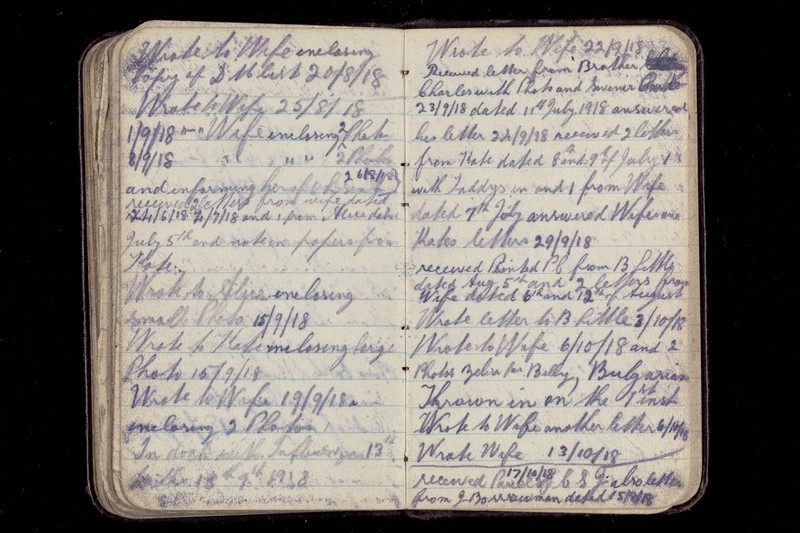 Wrote to Wife enclosing
Copy of S M list 20/8/18
Wrote to Wife 25/8/18
1/9/18 " " Wife enclosing 2 Photo
8/9/18 " " " 2 Photos
26/8/18
and informing her of
received 2 letters from wife dated
24/6/18 2/7/18 and 1 from Alice dated
July 5th and note on papers from
Kate.
Wrote to Alice enclosing
small Photo 15/9/18
Wrote to Kate enclosing large
Photo 15/9/18
Wrote to Wife 19/9/18
enclosing 2 Photos
In dock with Influenza 13th
to the 18th 9th 1918
Wrote to Wife 22/9/18
Received letter from Brother
Charles with Photo and
23/9/18 dated 11th July 1918 answered
his letter 24/9/18 received 2 letters
from Kate dated 8th and 9th of July
with Faddys in and 1 from Wife
dated 7th July answered Wifes and
Kates letters 29/9/18
received Printed PC from B Little
dated Aug 5th and 2 letters from
Wife dated 6th and 12th of August
Wrote letter to B Little 3/10/18
Wrote to Wife 6/10/18 and 2
Photos for Billy, Bulgarian
Thrown in on the 1st inst
Wrote to Wife another letter 6/10/18
Wrote Wife 13/10/18
17/10/18
received Parcel of C S G also letter
from J Borrowman dated 15/8/18